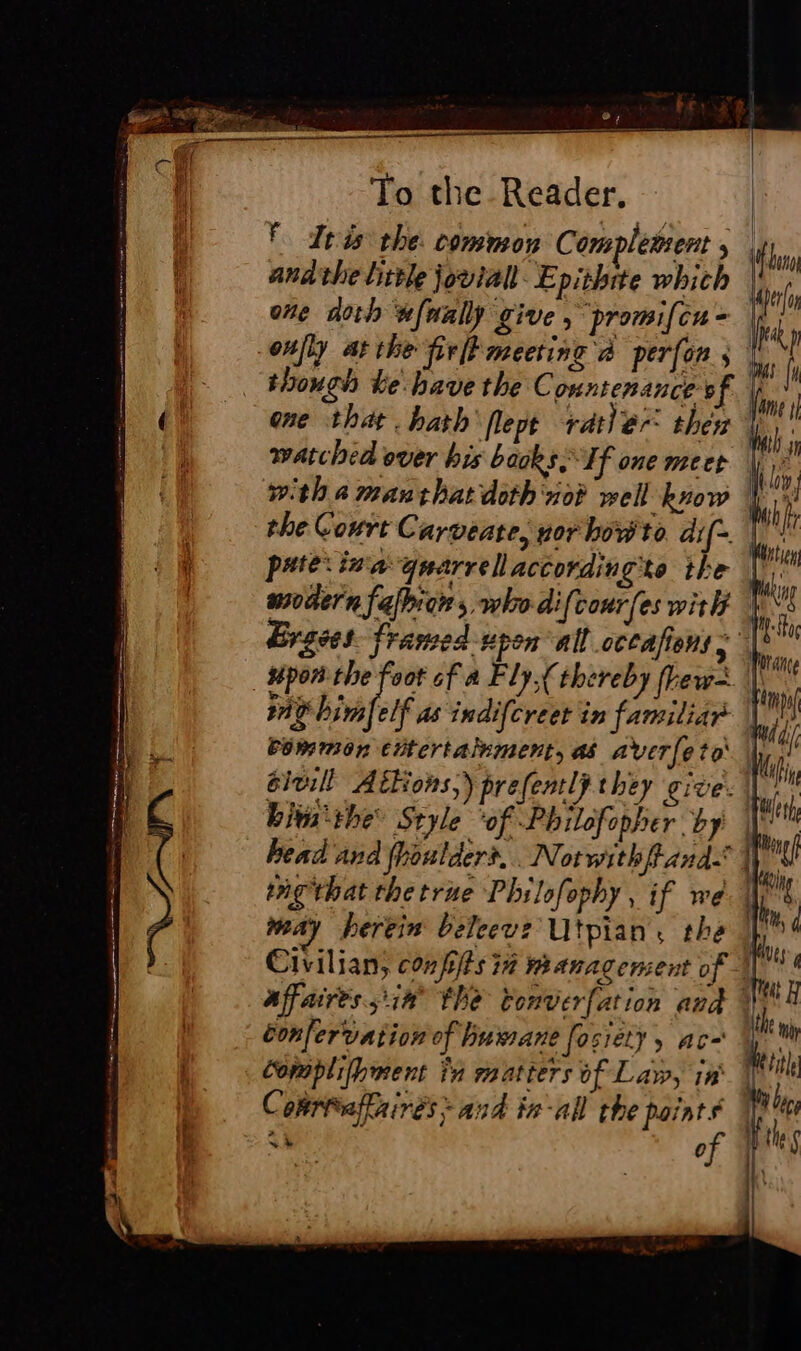 To the Reader.
It is the common Complement,
and the little joviall Epithite which
one doth uſually give, promiſcu-
ouſly at the firſt meeting a perſon;
though he have the Countenance of
one that hath ſlept rather then
watched over his books. If one meet
with a man that doth not well know
the Court Carveate, nor how to diſ-
pute in a quarrell according to the
modern faſhion, who diſcourſes with
Ergoes framed upon all occaſions,
upon the foot of a Fly, (thereby ſhew-
ing himſelf as indiſcreet in familiar
common entertainment, as averſe to
civill Actions,) preſently they give
him the Style of Philoſopher by
head and ſhoulders. Notwithſtand-
ing that the true Philoſophy, if we
may herein beleeve Utpian, the
Civilian, conſiſts in management of
affaires, in the converſation and
conſervation of humane ſociety, ac-
compliſhment in matters of Law, in
Court affaires, and in all the points
of